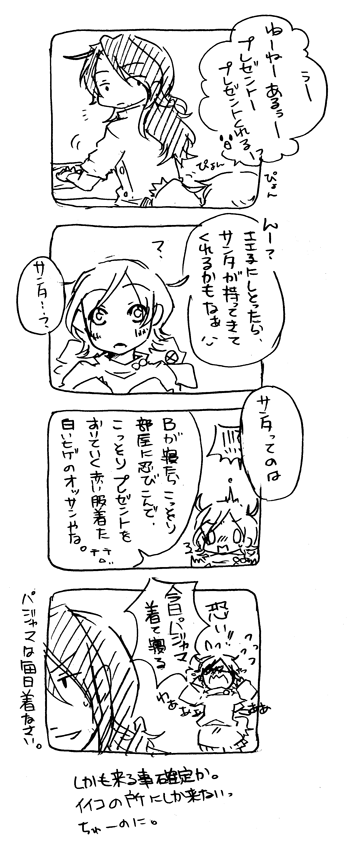 うー
ねーねーあるぅー
プレゼントー
プレゼントくれる?
ぴょん
ぴょん
んー?
ええ子にしとったら、
サンタが持ってきて
くれるかもなぁ
?
サンタ…?
サンタってのは
Bが寝たらこっそり
部屋に忍びこんで、
こっそりプレゼントを
おいていく赤い服着た
白いヒゲのオッサンやな。
恐い
今日パジャマ
着て寝る
わぁ
ああ
ああ
パジャマは毎日着なさい。
しかも来る事確定か。
イイコの所にしか来ないっ
ちゅーのに。